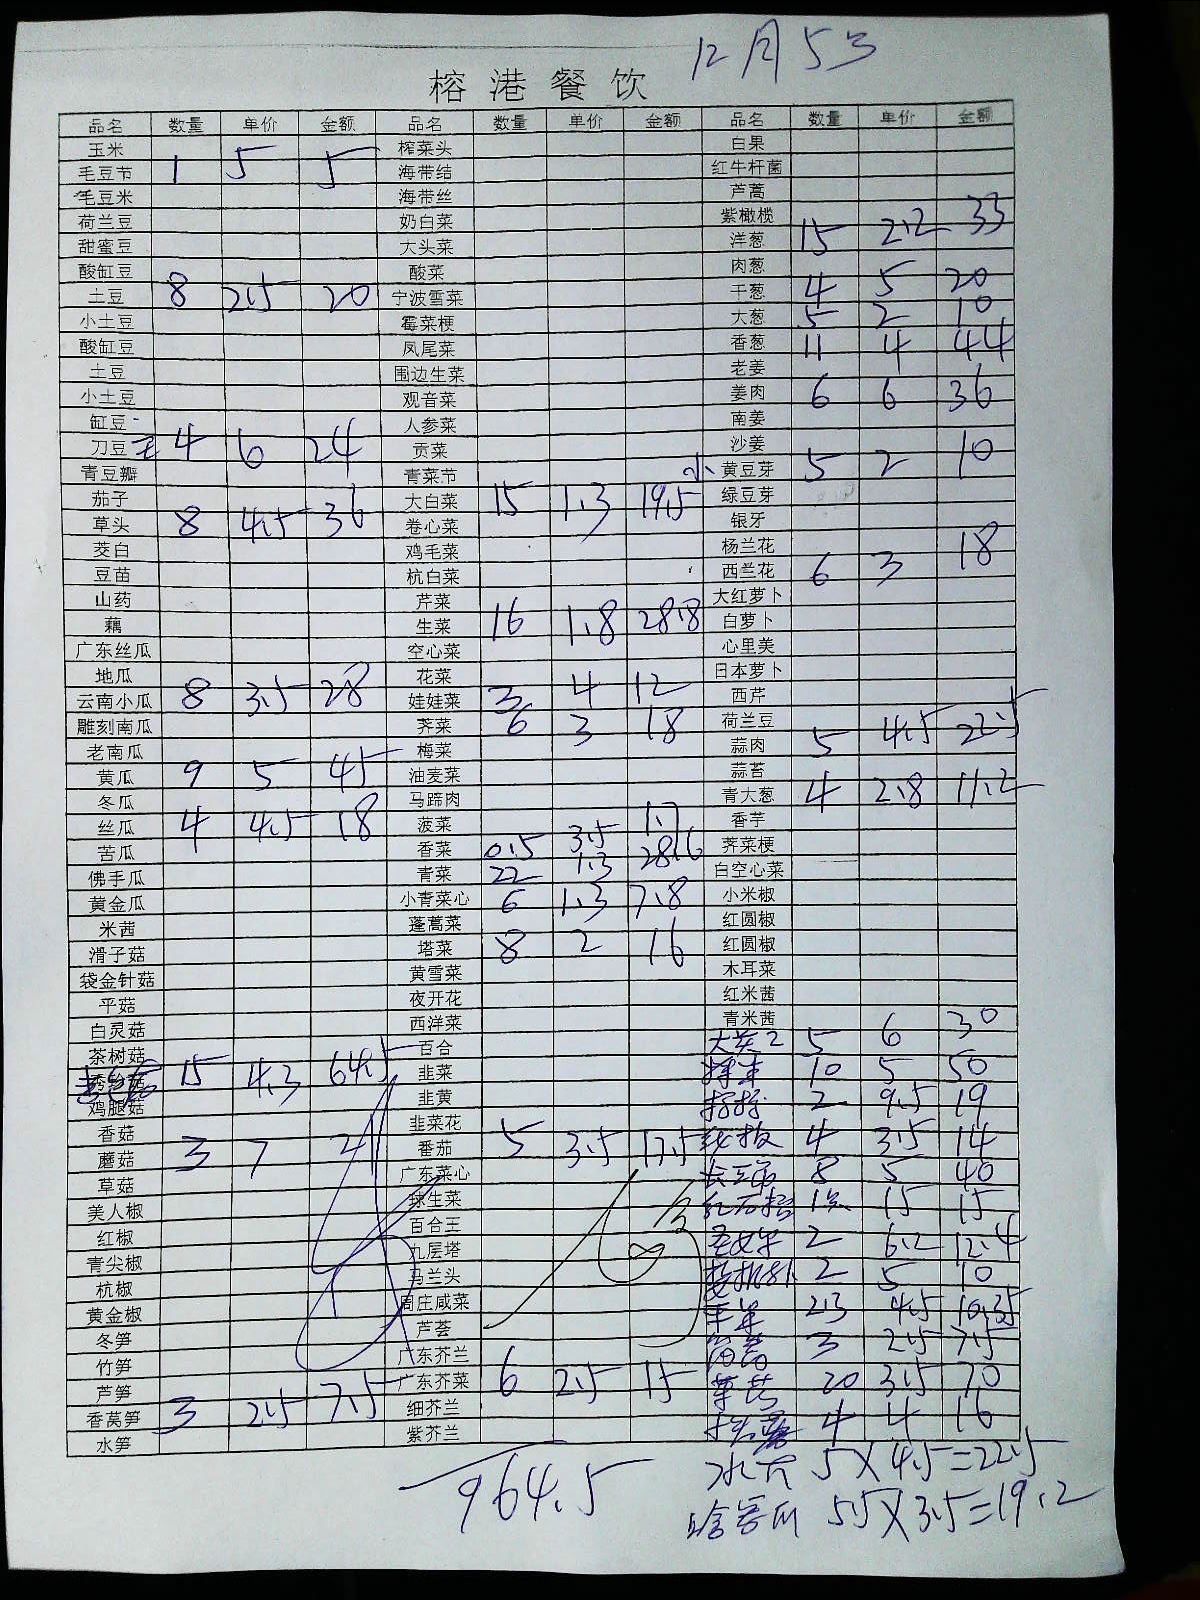 12月5号
榕港餐饮
品名 数量 单价 金额 品名 数量 单价 金额 品名 数量 单价 金额
玉米 榨菜头 白果
毛豆节 1 5 5 海带结 红牛杆菌
毛豆米 海带丝 芦蒿
荷兰豆 奶白菜 紫橄榄
甜蜜豆 大头菜 洋葱 15 2.2 33
酸缸豆 酸菜 肉葱
土豆 8 2.5 20 宁波雪菜 干葱 4 5 20
小土豆 霉菜梗 大葱 5 2 10
酸缸豆 凤尾菜 香葱 11 4 44
土豆 围边生菜 老姜
小土豆 观音菜 姜肉 6 6 36
缸豆 人参菜 南姜
刀豆 4 6 24 贡菜 沙姜
青豆瓣 青菜节 小 黄豆芽 5 2 10
茄子 大白菜 15 1.3 19.5 绿豆芽
草头 8 4.5 36 卷心菜 银牙
茭白 鸡毛菜 杨兰花
豆苗 杭白菜 西兰花 6 3 18
山药 芹菜 大红萝卜
藕 生菜 16 1.8 28.8 白萝卜
广东丝瓜 空心菜 心里美
地瓜 花菜 日本萝卜
云南小瓜 8 3.5 28 娃娃菜 3 4 12 西芹
雕刻南瓜 荠菜 6 3 18 荷兰豆
老南瓜 梅菜 蒜肉 5 4.5 22.5
黄瓜 9 5 45 油麦菜 蒜苔
冬瓜 马蹄肉 青大葱 4 2.8 11.2
丝瓜 4 4.5 18 菠菜 香芋
苦瓜 香菜 0.5 3.5 1.7 荠菜梗
佛手瓜 青菜 22 1.3 28.6 白空心菜
黄金瓜 小青菜心 6 1.3 7.8 小米椒
米茜 蓬蒿菜 红圆椒
滑子菇 塔菜 8 2 16 红圆椒
袋金针菇 黄雪菜 木耳菜
平菇 夜开花 红米茜
白灵菇 西洋菜 青米茜
茶树菇 百合 5 6 30
15 4.3 64.5 韭菜 10 5 50
鸡腿菇 韭黄 2 9.5 19
香菇 韭菜花 4 3.5 14
蘑菇 3 7 21 番茄 5 3.5 17.5
草菇 广东菜心 8 5 40
美人椒 球生菜 15 15
红椒 百合王 2 6.2 12.4
青尖椒 九层塔 2 5 10
杭椒 马兰头 2.3 4.5 10.35
黄金椒 周庄咸菜 3 2.5 7.5
冬笋 芦荟
竹笋 广东芥兰
芦笋 广东芥菜 6 2.5 15 20 3.5 70
香莴笋 3 2.5 7.5 细芥兰 4 4 16
水笋 紫芥兰
964.5
5X4.5=22.5
5.5X3.5=19.2